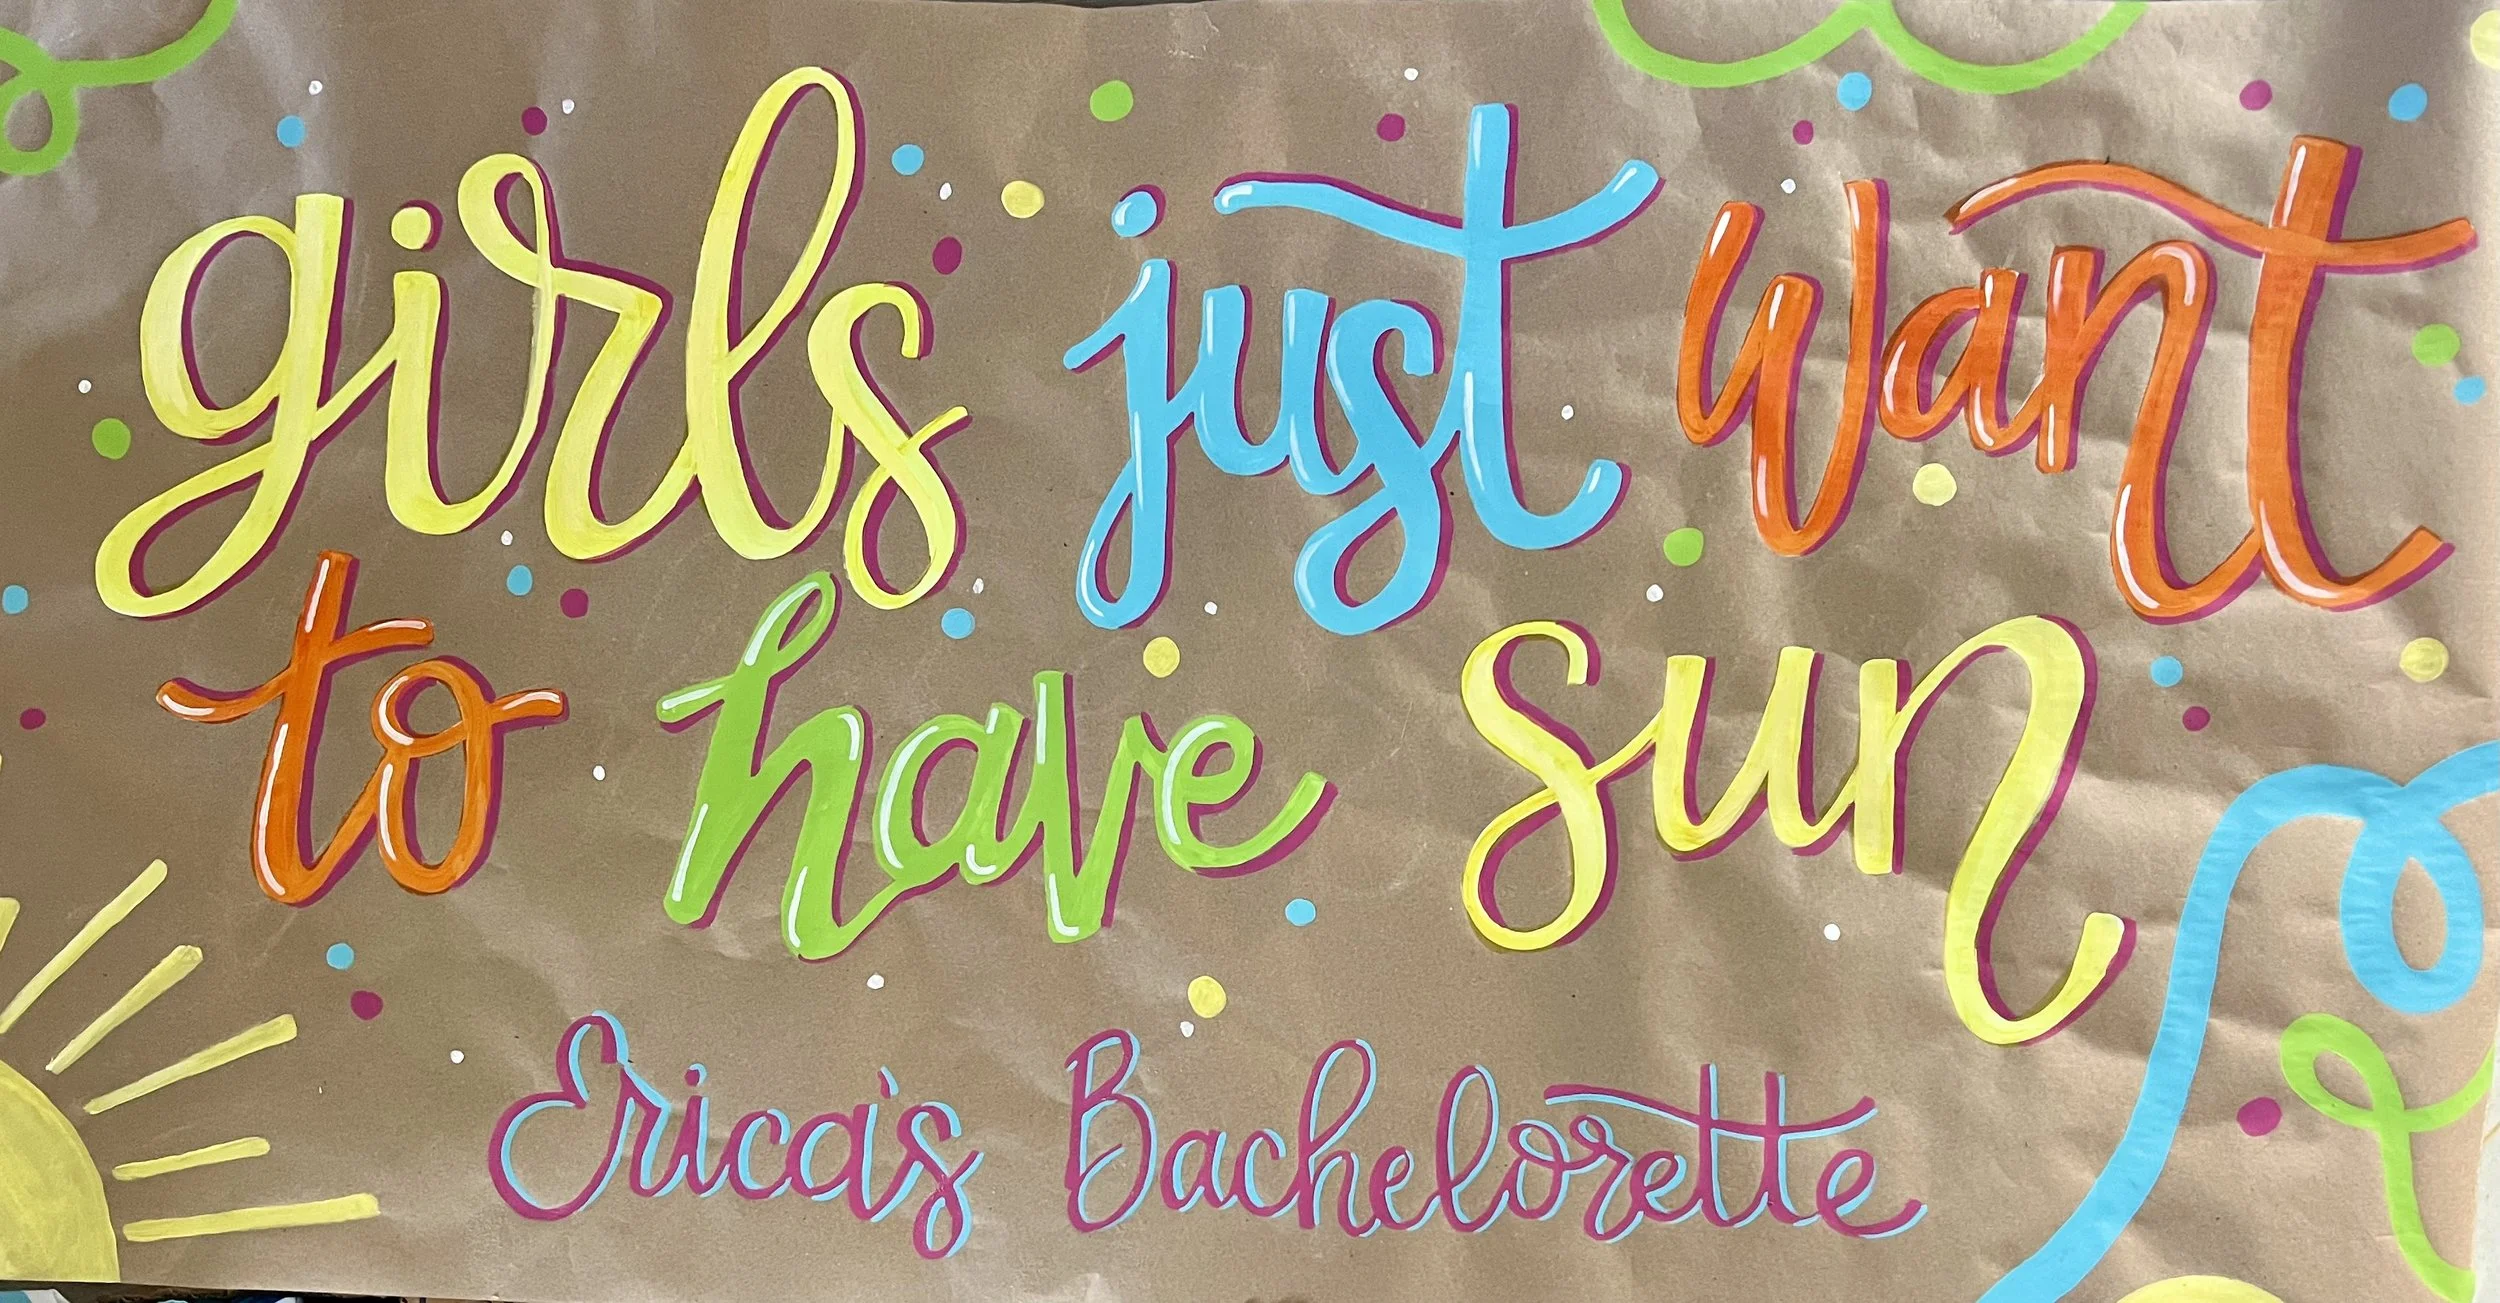 girls just want
to have sun
Erica's Bachelorette